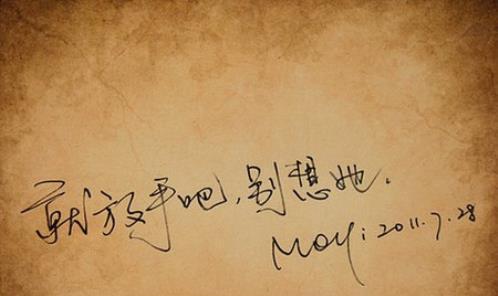 就放手吧,别想她.
MOY:2011.7.28